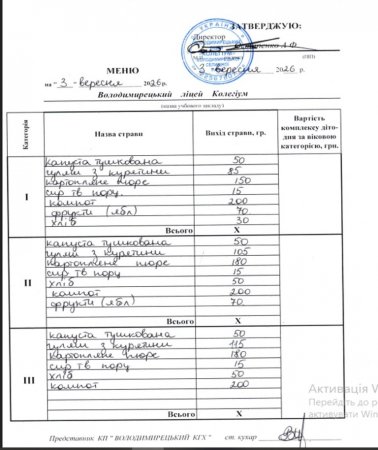 ЗАТВЕРДЖУЮ:
Директор
(ПІП)
МЕНЮ
на "3" вересня 2026р.
"3" вересня 2026 р.
Володимирецький ліцей Колегіум
(назва учбового закладу)
Категорія Назва страви Вихід страви, гр. Вартість комплексу діто-дня за віковою категорією, грн.
I
капуста тушкована 50
гуляш з курятини 85
картопляне пюре 150
сир тв порц. 15
компот 200
фрукти (ябл) 70
хліб 30
Всього X
II
капуста тушкована 50
гуляш з курятини 105
картопляне пюре 180
сир тв порц 15
хліб 50
компот 200
фрукти (ябл) 70
Всього X
III
капуста тушкована 50
гуляш з курятини 115
картопляне пюре 180
сир тв порц 15
хліб 50
компот 200
Всього X
Представник КП "ВОЛОДИМИРЕЦЬКИЙ КГХ" ст. кухар
Активація W
Перейдіть до р
активувати Win